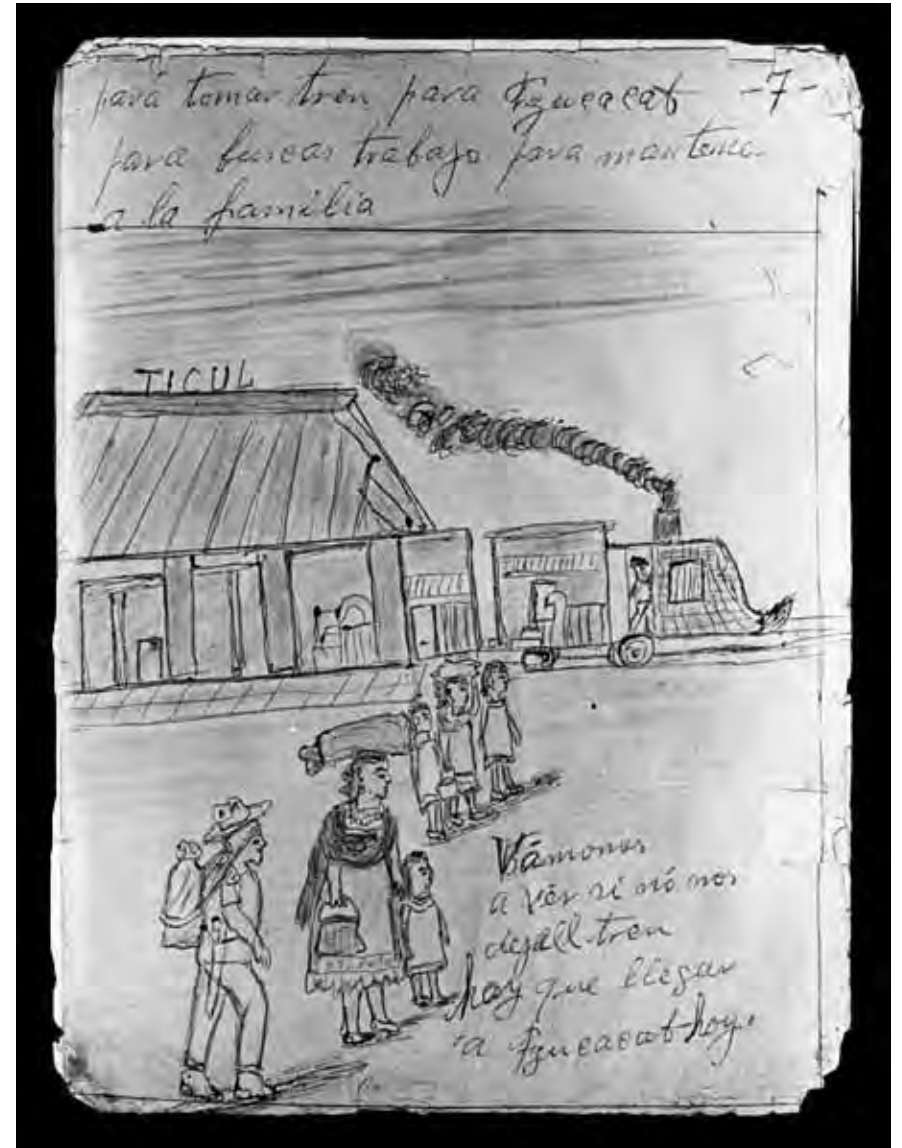 para tomar tren para Tzucacab -7-
para buscar trabajo para mantener
a la familia
TICUL
Vámonos
a vér si nó nos
deja ll tren
hay que llegar
a Tzucacab hoy.